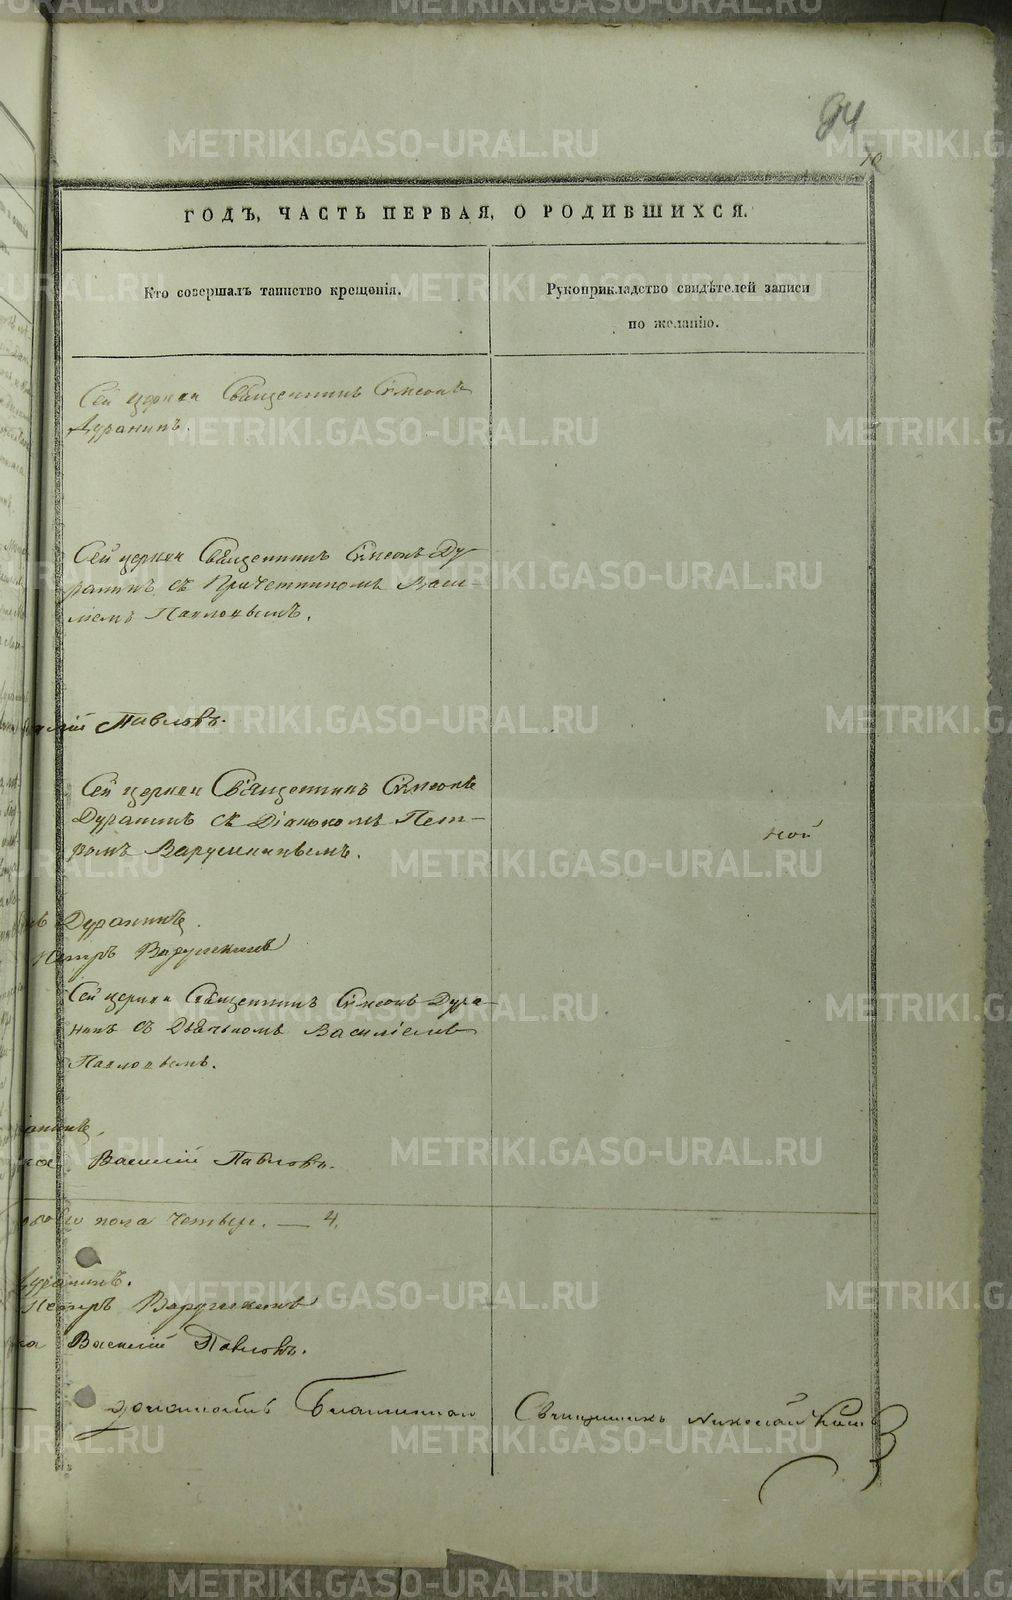 94
ГОДЪ, ЧАСТЬ ПЕРВАЯ, О РОДИВШИХСЯ.
Кто совершалъ таинство крещенія.
Рукоприкладство свидѣтелей записи
по желанію.
Сей церкви Священникъ Симеонъ
Дуранинъ.
Сей церкви Священникъ Симеонъ Ду-
ранинъ съ Причетникомъ Васи-
ліемъ Павловымъ.
Павловъ.
Сей церкви Священникъ Симеонъ
Дуранинъ съ Діакономъ Пет-
ромъ Варушкинымъ.
ной
Дуранинъ.
Петръ Варушкинъ
Сей церкви Священникъ Симеонъ Дура-
нинъ съ Дьячкомъ Василіемъ
Павловымъ.
Василій Павловъ.
пола четверо. — 4.
Дуранинъ.
Петръ Варушкинъ
Василій Павловъ.
Священникъ Николай
METRIKI.GASO-URAL.RU